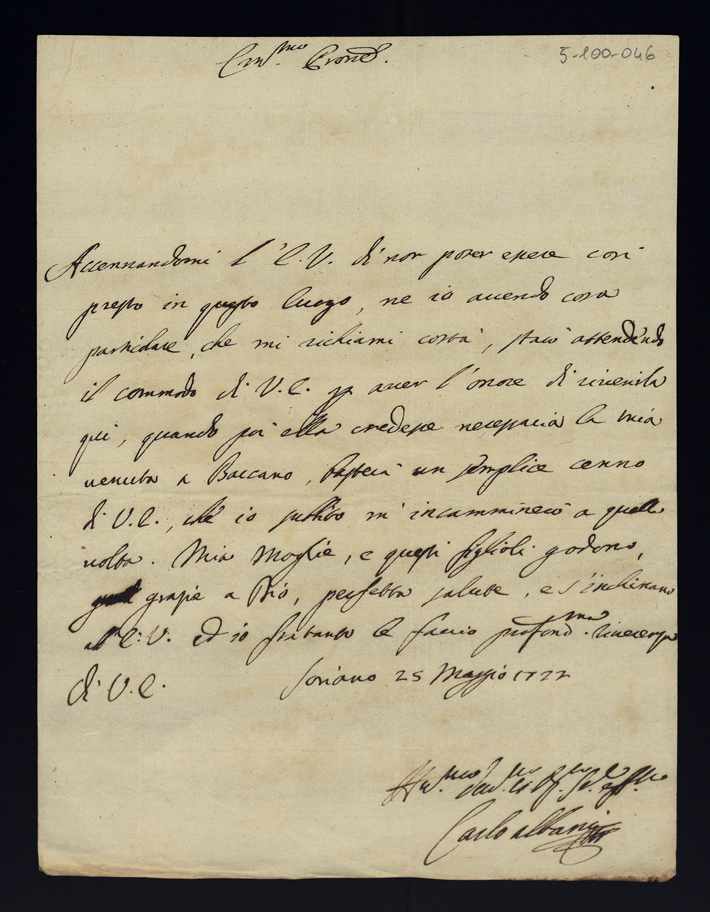 Em.mo Prone
5-100-046
Accennandomi l'E.V. di non poter essere così
presto in questo luogo, ne io avendo cosa
particolare, che mi richiami costà, starò attendendo
il commodo di V.E. per aver l'onore di riverirla
qui, quando poi ella credesse necessaria la mia
venuta a Baccano, basterà un semplice cenno
di V.E., che io subbito m'incamminerò a quella
volta. Mia Moglie, e questi figlioli godono,
grazie a Dio, perfetta salute, e s'inchinano
all'E.V. ed io frattanto le faccio profond.ma riverenza
di V.E. Soriano 25 Maggio 1722
Carlo Albani